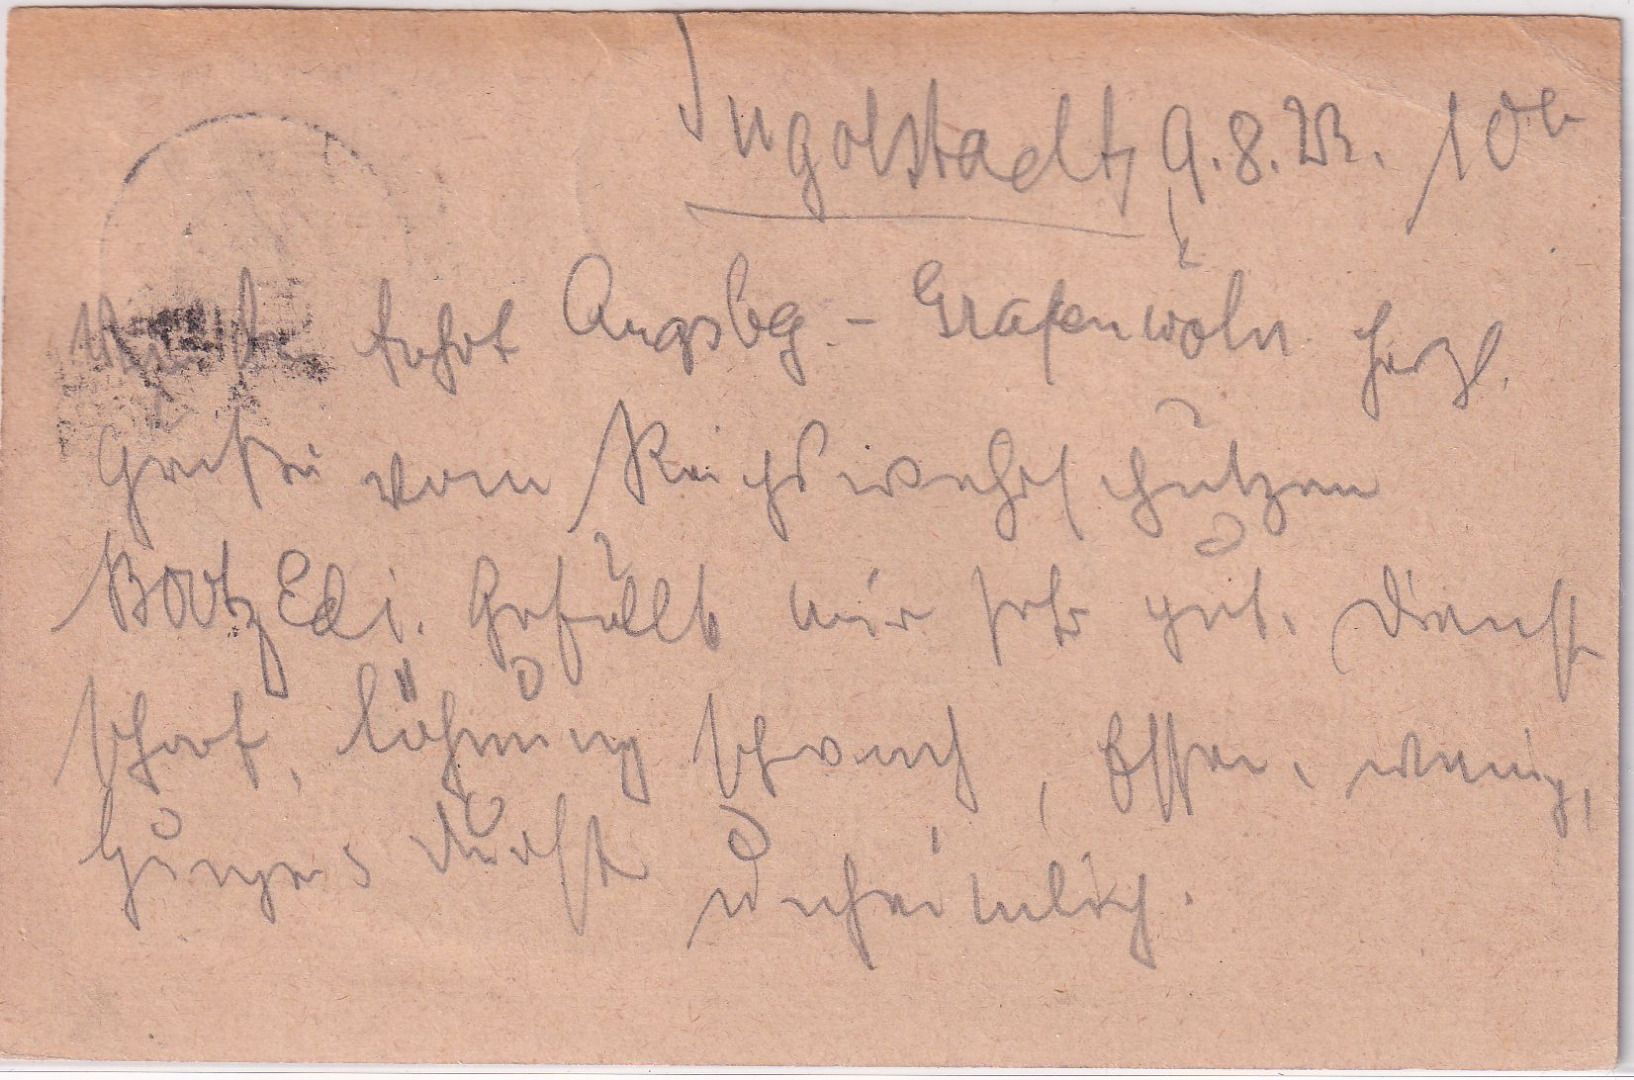 Ingolstadt, 9.8.23. 10 h
fahrt Augsbg. - Grafenwöhr. Herzl.
Grüße vom Reichswehrschützen
Edi. Gefällt mir sehr gut. Dienst
scharf, Löhnung schwach, Essen wenig,
Hunger Durst unheimlich.